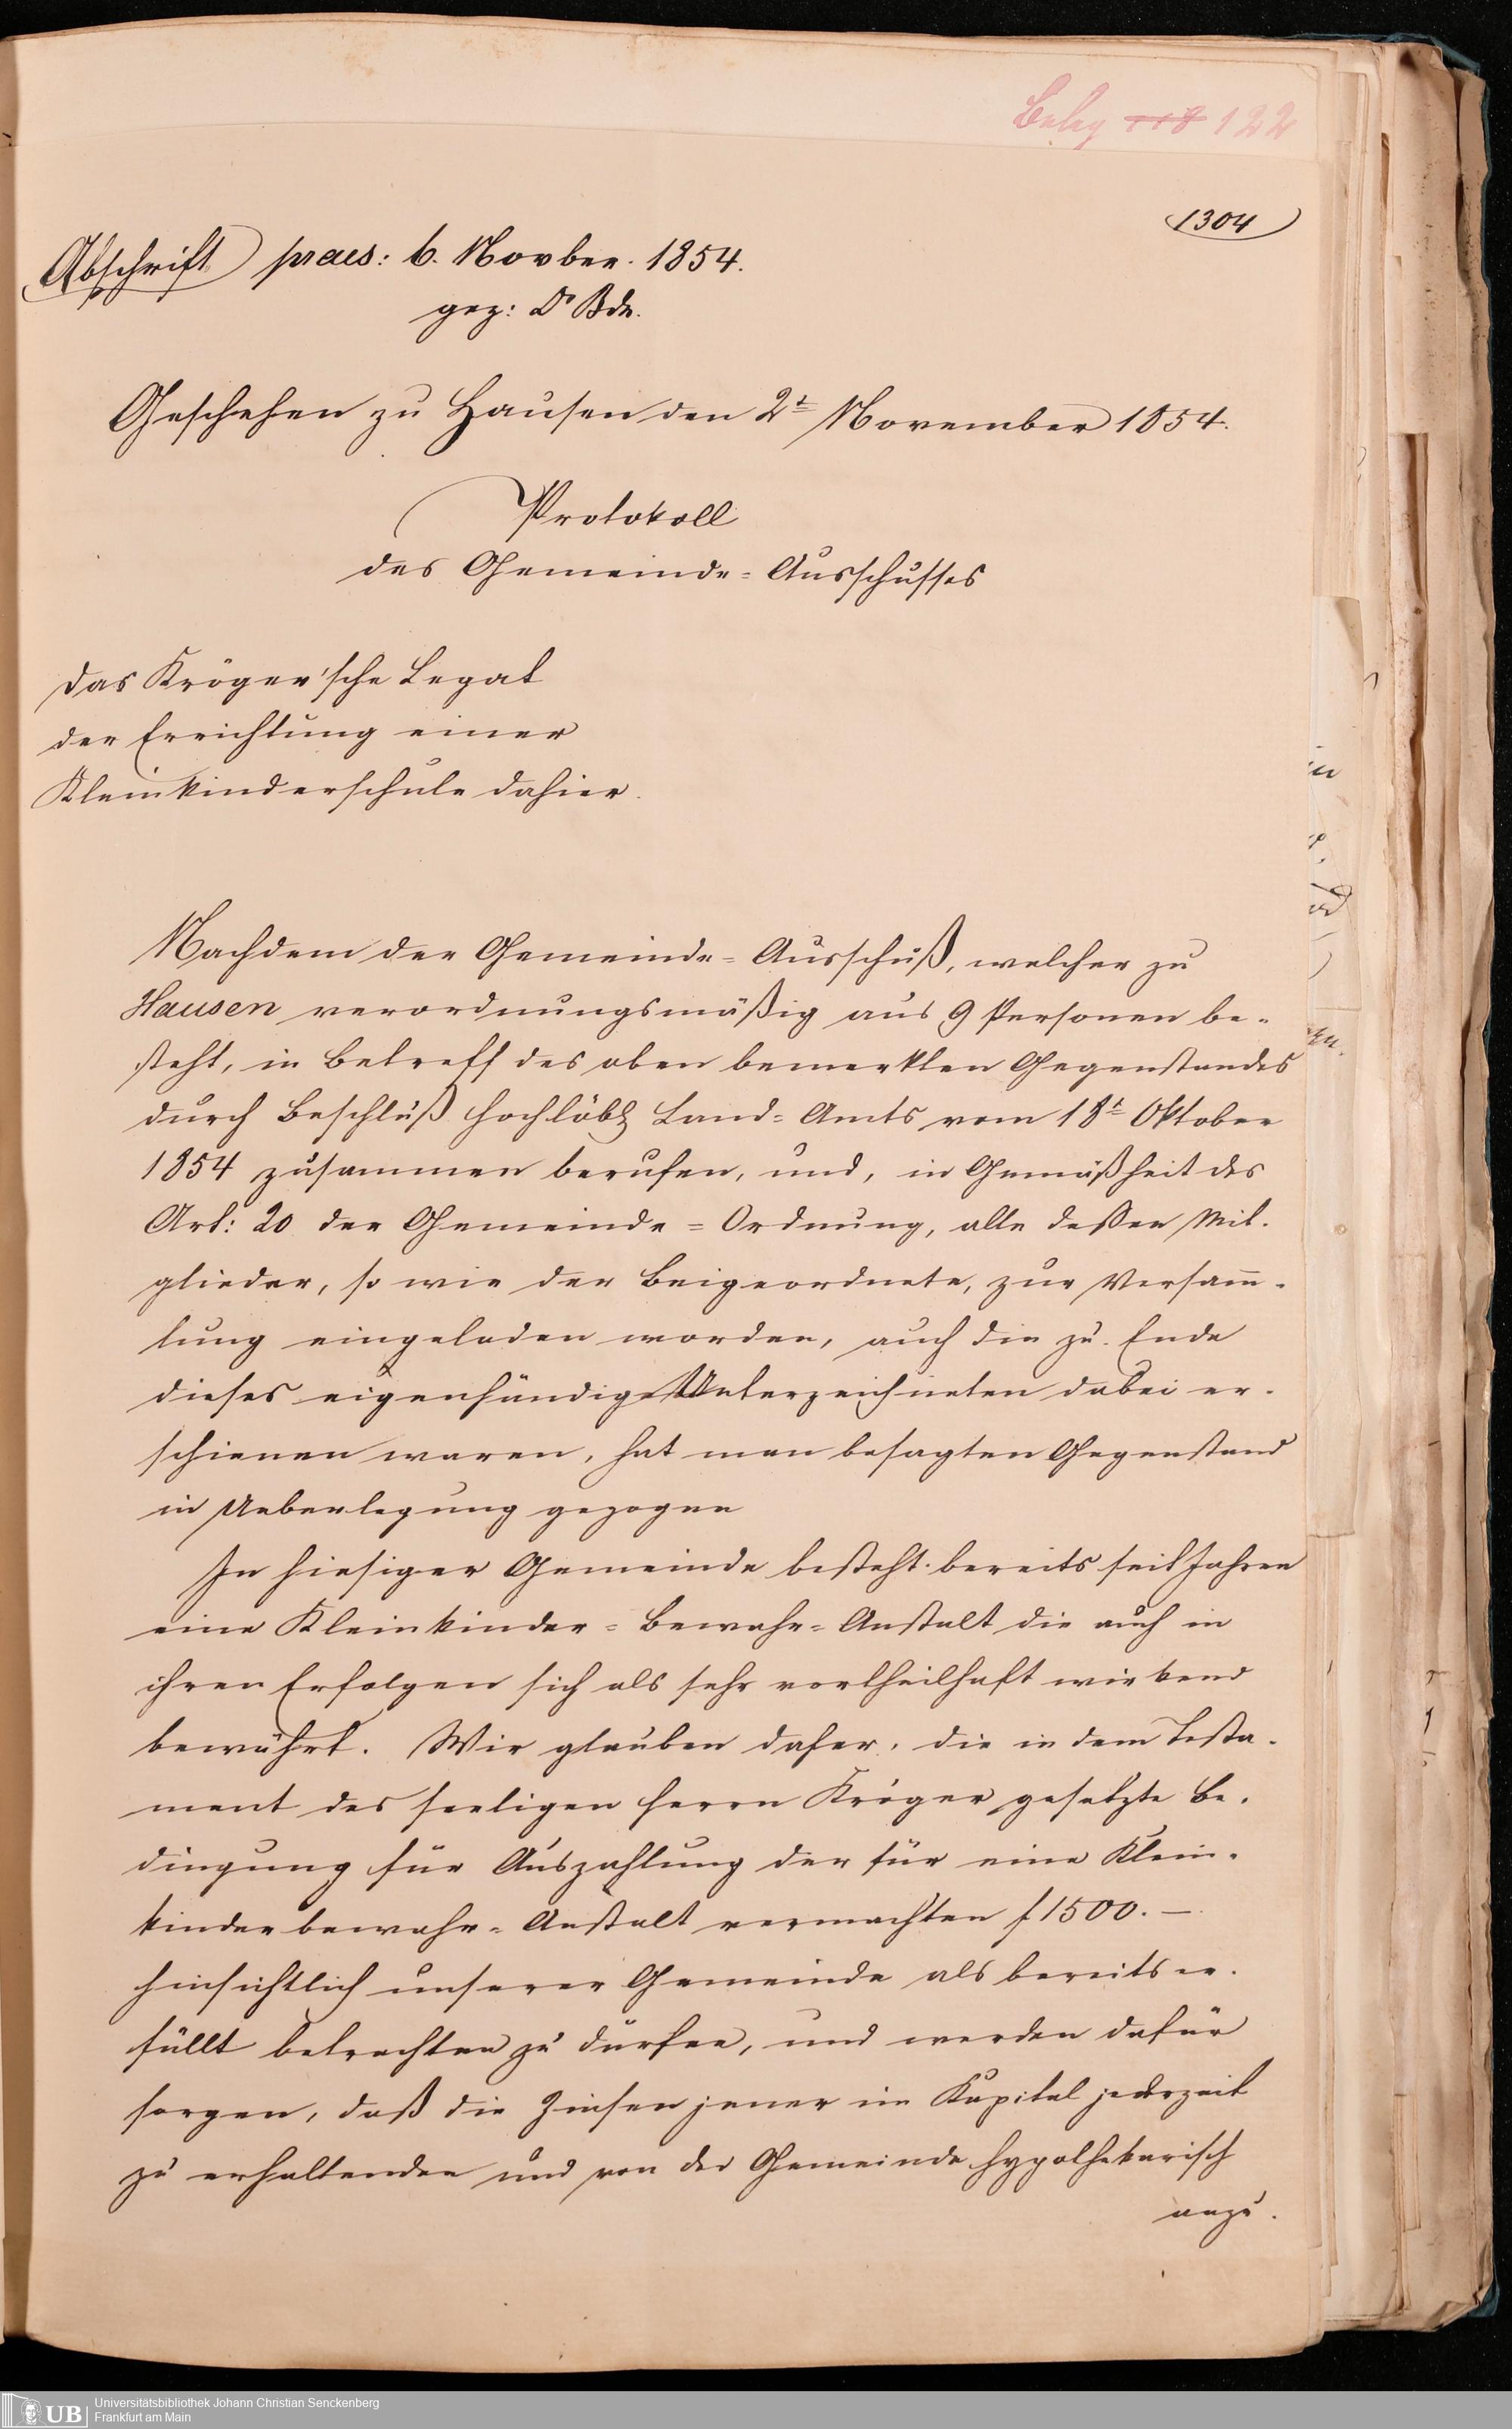 Beleg 118 122
1304
Abschrift praes: 6. Novber. 1854.
gez: Dr Bdr.
Geschehen zu Hausen den 2t November 1854.
Protokoll
des Gemeinde=Ausschusses
das Kröger'sche Legat
der Errichtung einer
Kleinkinderschule dahier.
Nachdem der Gemeinde=Ausschuß, welcher zu
Hausen verordnungsmäßig aus 9 Personen be-
steht, in Betreff des oben bemerkten Gegenstandes
durch Beschluß hochlöbl Land=Amts vom 18t Oktober
1854 zusammen berufen, und, in Gemäßheit des
Art: 20 der Gemeinde=Ordnung, alle dessen Mit-
glieder, so wie der Beigeordnete, zur Versam̅-
lung eingeladen worden, auch die zu Ende
dieses eigenhändig Unterzeichneten dabei er-
schienen waren, hat man besagten Gegenstand
in Ueberlegung gezogen
In hiesiger Gemeinde besteht bereits seit Jahren
eine Kleinkinder=Bewahr=Anstalt die auch in
ihren Erfolgen sich als sehr vortheilhaft wirkend
bewährt. Wir glauben daher, die in dem Testa-
ment des seeligen Herrn Kröger gesetzte Be-
dingung für Auszahlung der für eine Klein-
kinderbewahr=Anstalt vermachten f 1500.—
hinsichtlich unserer Gemeinde als bereits er-
füllt betrachten zu dürfen, und werden dafür
sorgen, daß die Zinsen jener im Kapital jederzeit
zu erhaltenden und von der Gemeinde hypothekarisch
anzu-
UB
Universitätsbibliothek Johann Christian Senckenberg
Frankfurt am Main